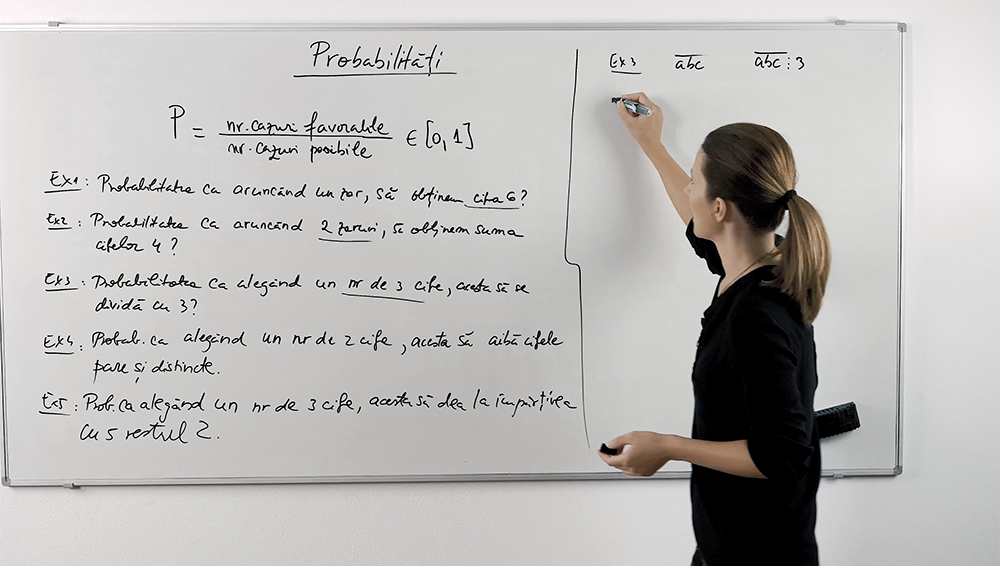 Probabilități
P = nr. cazuri favorabile / nr. cazuri posibile ∈ [0,1]
Ex1: Probabilitatea ca aruncând un zar, să obținem cifra 6?
Ex2: Probabilitatea ca aruncând 2 zaruri, să obținem suma
cifrelor 4?
Ex3: Probabilitatea ca alegând un nr de 3 cife, acesta să se
dividă cu 3?
Ex4: Probab. ca alegând un nr de 2 cife, acesta să aibă cifele
pare și distincte.
Ex5: Prob. ca alegând un nr de 3 cife, acesta să dea la împărțirea
cu 5 restul 2.
Ex3 a̅b̅c̅ a̅b̅c̅ ⋮ 3